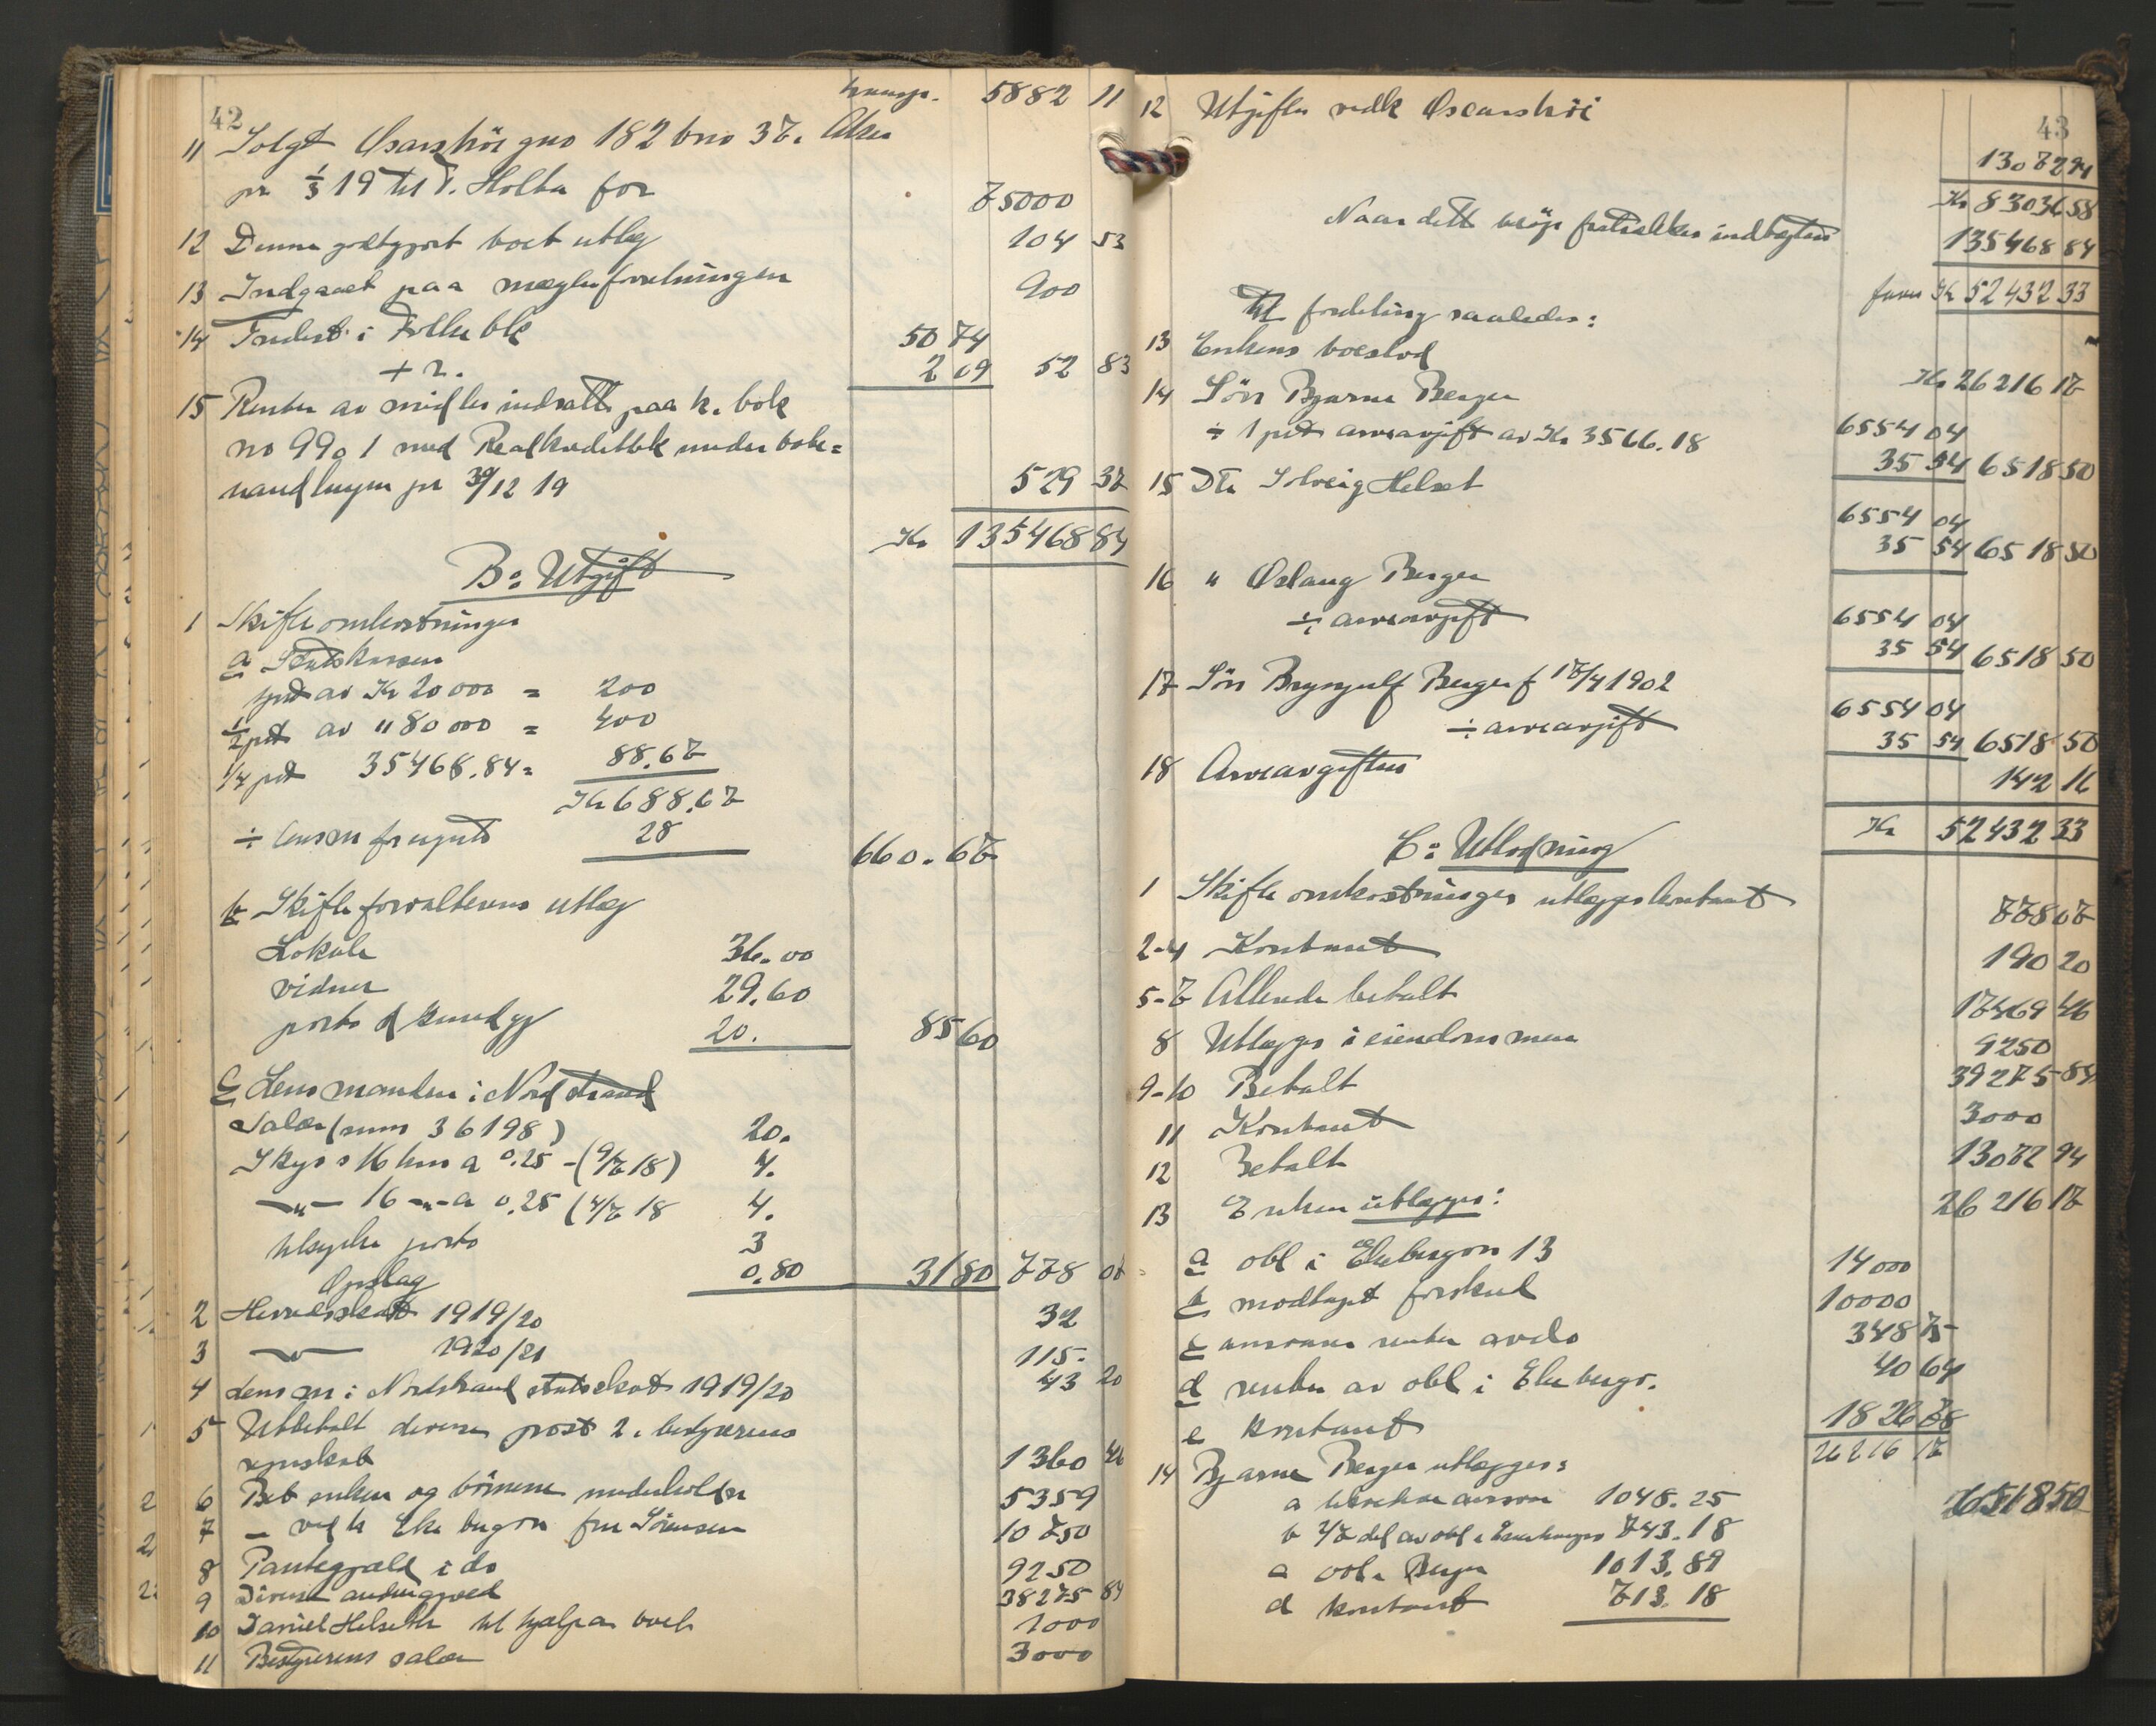 42
transp. 5882 11
11 Solgt Oscarshöi gno 182 bno 37. Aker
pr 1/3 19 til T. Holta for 75000
12 Denne godtgjort boet utlæg 104 53
13 Indgaaet paa mæglerforretningen 900
14 Indest. i Folkebk 50 74
+ r. 2 09 52 83
15 Renter av midler indsatt paa k. bok
no 9901 med Realkreditbk under bobe=
handlingen pr 30/12 19 529 37
Kr 135468 84
B: Utgift
1 Skifteomkostninger
a Statskassen
1 pct av Kr 20000 = 200
1/2 pct av " 80000 = 400
1/4 pct 35468.84 = 88.67
Kr 688.67
÷ 28
660.67
b Skifteforvalterens utlæg
Lokale 36.00
vidner 29.60
porto & kundgj 20. 85 60
c Lensmanden i Nordstrand
Salær (sum 36198) 20.
Skyss 16 km a 0.25 - (9/7 18) 4.
—"— 16 -"- a 0.25 (4/7 18 4.
tilsyelse porto 3
Opslag 0.80 31 80 778 07
2 Herredsskat 1919/20 32
3 —"— 1920/21 115.
4 Lensm i Nordstrand statsskat 1919/20 43 20
5 Utbetalt diverse post 2 i bestyrerens
regnskab 1360 46
6 Bet enken og börnene underholdn 5359
7 — vedk Ekebergvn fru Sörensen 10750
8 Pantegjæld i do 9250
9 Diverse andengjæld 38275 84
10 Daniel Helseth til hjælp a boet 1000
11 Bestyrerens salær 3000
43
12 Utgifter vedk Oscarshöi 13072 94
Kr 83036 58
Naar dette beløp fratrekkes indtægten 135468 84
faaes Kr 52432 33
til fordeling saaledes:
13 Enkens boeslod Kr 26216 17
14 Sön Bjarne Berger 6554 04
÷ 1 pct arveavgift av Kr 3566.18 35 54 6518 50
15 Dtr Solveig Helset 6554 04
35 54 6518 50
16 " Aslaug Berger 6554 04
÷ arveavgift 35 54 6518 50
17 Sön Brynjulf Berger f 17/4 1902 6554 04
÷ arveavgift 35 54 6518 50
18 Arveavgiften 142 16
Kr 52432 33
C: Utlodning
1 Skifteomkostninger utlægges kontant 778 07
2-4 Kontant 190 20
5-7 Allerede betalt 17469 46
8 Utlægges i eiendommen 9250
9-10 Betalt 39275 84
11 Kontant 3000
12 Betalt 13072 94
13 Enken utlægges: 26216 17
a obl i Ekebergvn 13 14000
b modtaget forskud 10000
c renter avdo 348 75
d renter av obl i Ekebergv. 40 64
e kontant 1826 78
26216 17
14 Bjarne Berger utlægges: 6518 50
a 1048.25
b 2/7 del av obl i 743.18
c Berger 1013.89
d kontant 713.18